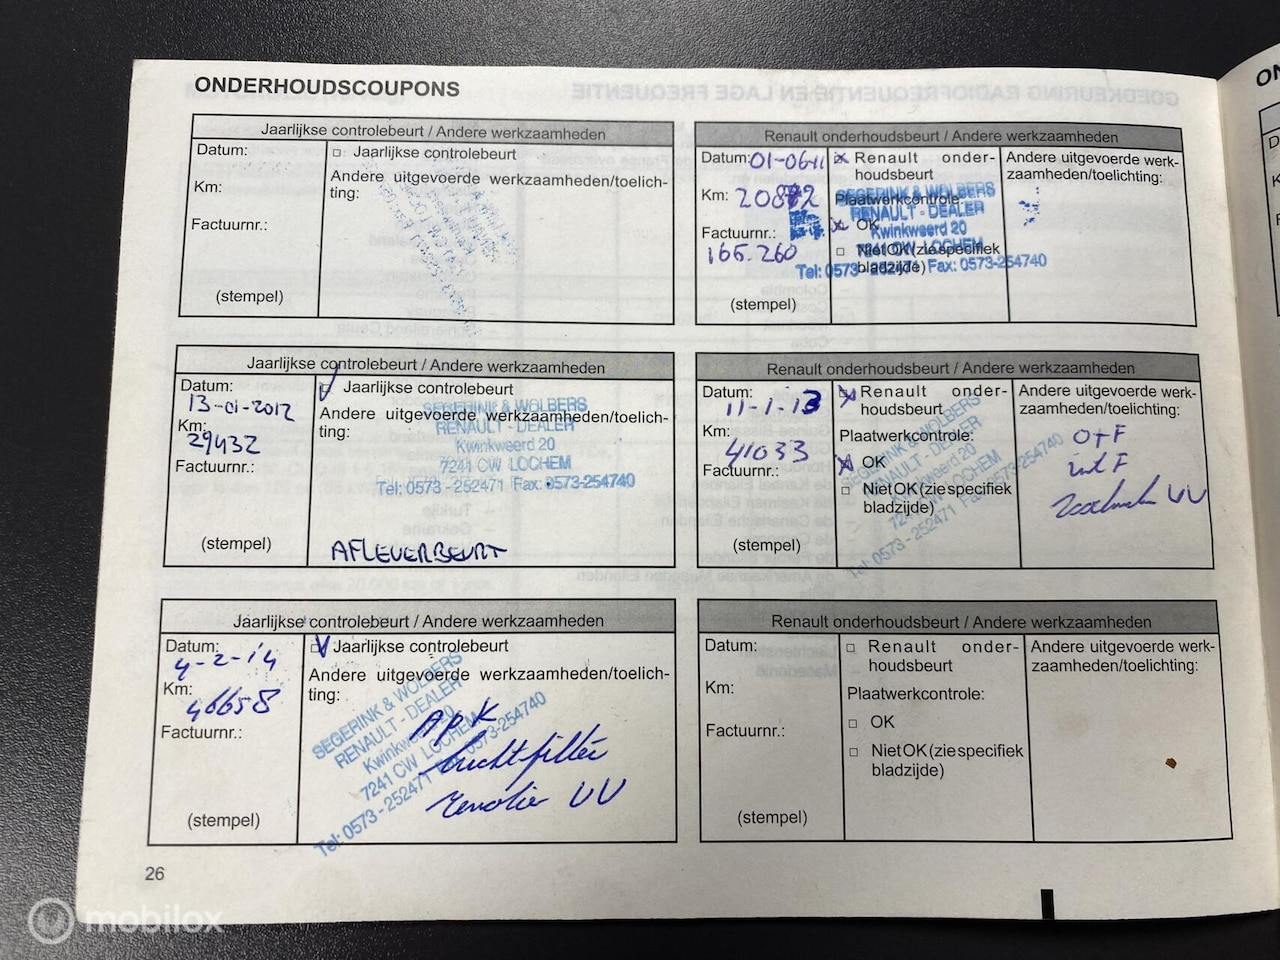 ONDERHOUDSCOUPONS
Jaarlijkse controlebeurt / Andere werkzaamheden
Datum:
□ Jaarlijkse controlebeurt
Andere uitgevoerde werkzaamheden/toelich-
ting:
Km:
Factuurnr.:
(stempel)
Renault onderhoudsbeurt / Andere werkzaamheden
Datum: 01-06-11
Km: 20872
Factuurnr.:
165.260
(stempel)
Renault onder-
houdsbeurt
Plaatwerkcontrole:
OK
□ Niet OK (zie specifiek
bladzijde)
SEGERINK & WOLBERS
RENAULT - DEALER
Kwinkweerd 20
7241 CW LOCHEM
Tel: 0573-252471 Fax: 0573-254740
Andere uitgevoerde werk-
zaamheden/toelichting:
Jaarlijkse controlebeurt / Andere werkzaamheden
Datum:
13-01-2012
Km:
29432
Factuurnr.:
(stempel)
Jaarlijkse controlebeurt
Andere uitgevoerde werkzaamheden/toelich-
ting:
SEGERINK & WOLBERS
RENAULT - DEALER
Kwinkweerd 20
7241 CW LOCHEM
Tel: 0573 - 252471 Fax: 0573-254740
AFLEVERBEURT
Renault onderhoudsbeurt / Andere werkzaamheden
Datum:
11-1-13
Km:
41033
Factuurnr.:
(stempel)
Renault onder-
houdsbeurt
Plaatwerkcontrole:
OK
□ Niet OK (zie specifiek
bladzijde)
SEGERINK & WOLBERS
RENAULT - DEALER
Kwinkweerd 20
7241 CW LOCHEM
Tel: 0573 - 252471 Fax: 0573-254740
Andere uitgevoerde werk-
zaamheden/toelichting:
O+F
int F
VV
Jaarlijkse controlebeurt / Andere werkzaamheden
Datum:
4-2-14
Km:
46658
Factuurnr.:
(stempel)
Jaarlijkse controlebeurt
Andere uitgevoerde werkzaamheden/toelich-
ting:
SEGERINK & WOLBERS
RENAULT - DEALER
Kwinkweerd 20
7241 CW LOCHEM
Tel: 0573 - 252471 Fax: 0573-254740
APK
Luchtfilter
Remolie VV
Renault onderhoudsbeurt / Andere werkzaamheden
Datum:
Km:
Factuurnr.:
(stempel)
□ Renault onder-
houdsbeurt
Plaatwerkcontrole:
□ OK
□ Niet OK (zie specifiek
bladzijde)
Andere uitgevoerde werk-
zaamheden/toelichting:
26
mobilox